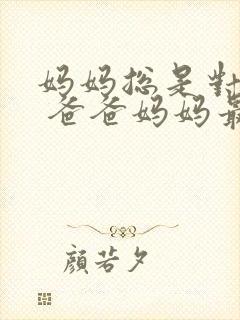 妈妈总是對
爸爸妈妈最
顔若夕